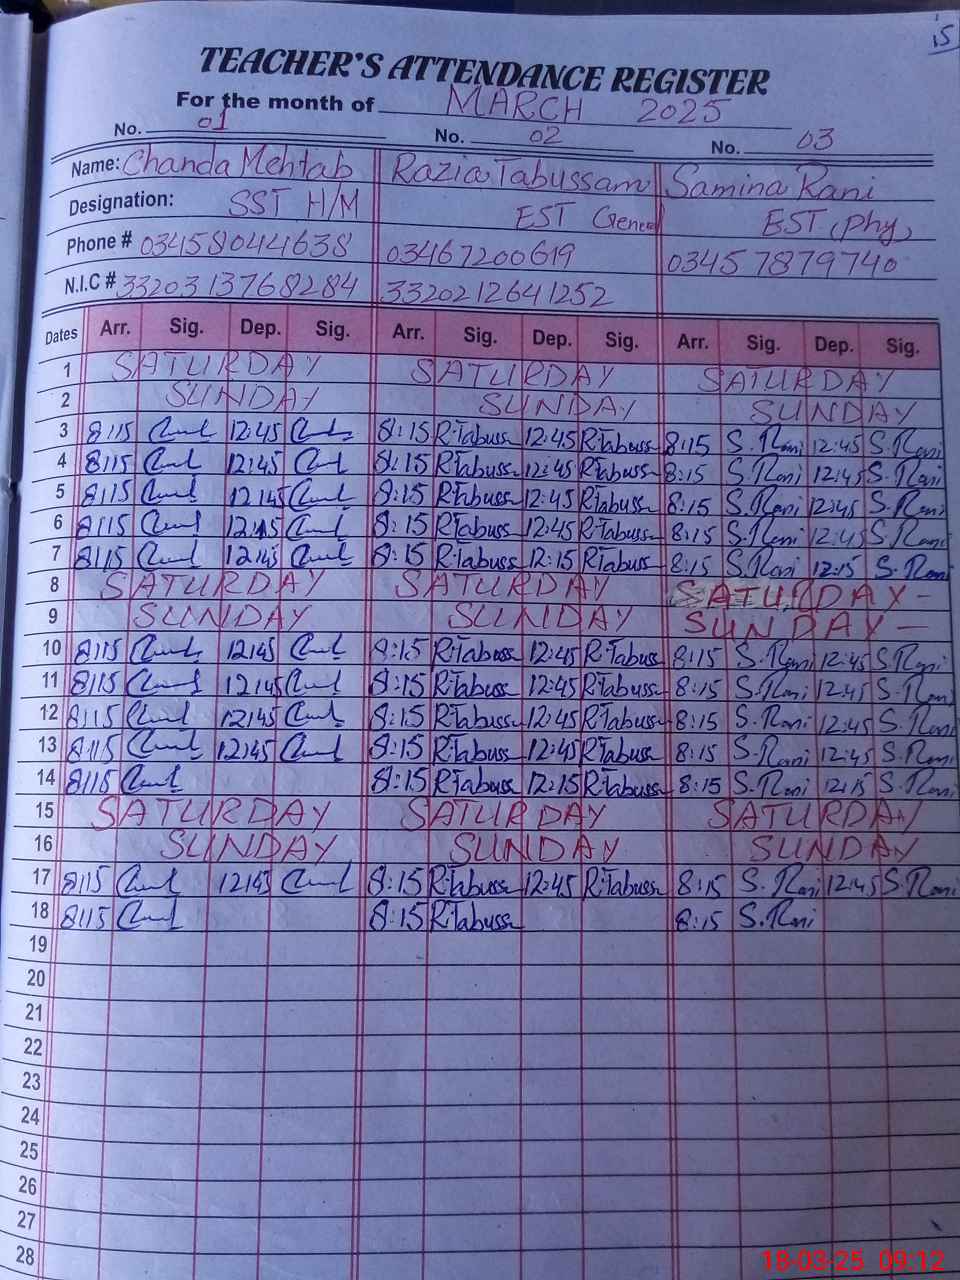 15
TEACHER'S ATTENDANCE REGISTER
For the month of MARCH 2025
No. 01 No. 02 No. 03
Name: Chanda Mehtab Razia Tabussam Samina Rani
Designation: SST H/M EST General EST (Phy)
Phone # 03458044638 03467200619 03457879740
N.I.C # 3320313768284 3320212641252
Dates Arr. Sig. Dep. Sig. Arr. Sig. Dep. Sig. Arr. Sig. Dep. Sig.
1 SATURDAY SATURDAY SATURDAY
2 SUNDAY SUNDAY SUNDAY
3 8:15 12:45 8:15 R.Tabuss 12:45 R.Tabuss 8:15 S. Rani 12:45 S. Rani
4 8:15 12:45 8:15 R.Tabuss 12:45 R.Tabuss 8:15 S. Rani 12:45 S. Rani
5 8:15 12:45 8:15 R.Tabuss 12:45 R.Tabuss 8:15 S. Rani 12:45 S. Rani
6 8:15 12:45 8:15 R.Tabuss 12:45 R.Tabuss 8:15 S. Rani 12:45 S. Rani
7 8:15 12:45 8:15 R.Tabuss 12:15 R.Tabuss 8:15 S. Rani 12:15 S. Rani
8 SATURDAY SATURDAY SATURDAY
9 SUNDAY SUNDAY SUNDAY
10 8:15 12:45 8:15 R.Tabuss 12:45 R.Tabuss 8:15 S. Rani 12:45 S. Rani
11 8:15 12:45 8:15 R.Tabuss 12:45 R.Tabuss 8:15 S. Rani 12:45 S. Rani
12 8:15 12:45 8:15 R.Tabuss 12:45 R.Tabuss 8:15 S. Rani 12:45 S. Rani
13 8:15 12:45 8:15 R.Tabuss 12:45 R.Tabuss 8:15 S. Rani 12:45 S. Rani
14 8:15 8:15 R.Tabuss 12:15 R.Tabuss 8:15 S. Rani 12:15 S. Rani
15 SATURDAY SATURDAY SATURDAY
16 SUNDAY SUNDAY SUNDAY
17 8:15 12:45 8:15 R.Tabuss 12:45 R.Tabuss 8:15 S. Rani 12:45 S. Rani
18 8:15 8:15 R.Tabuss 8:15 S. Rani
19
20
21
22
23
24
25
26
27
28
18-03-25 09:12